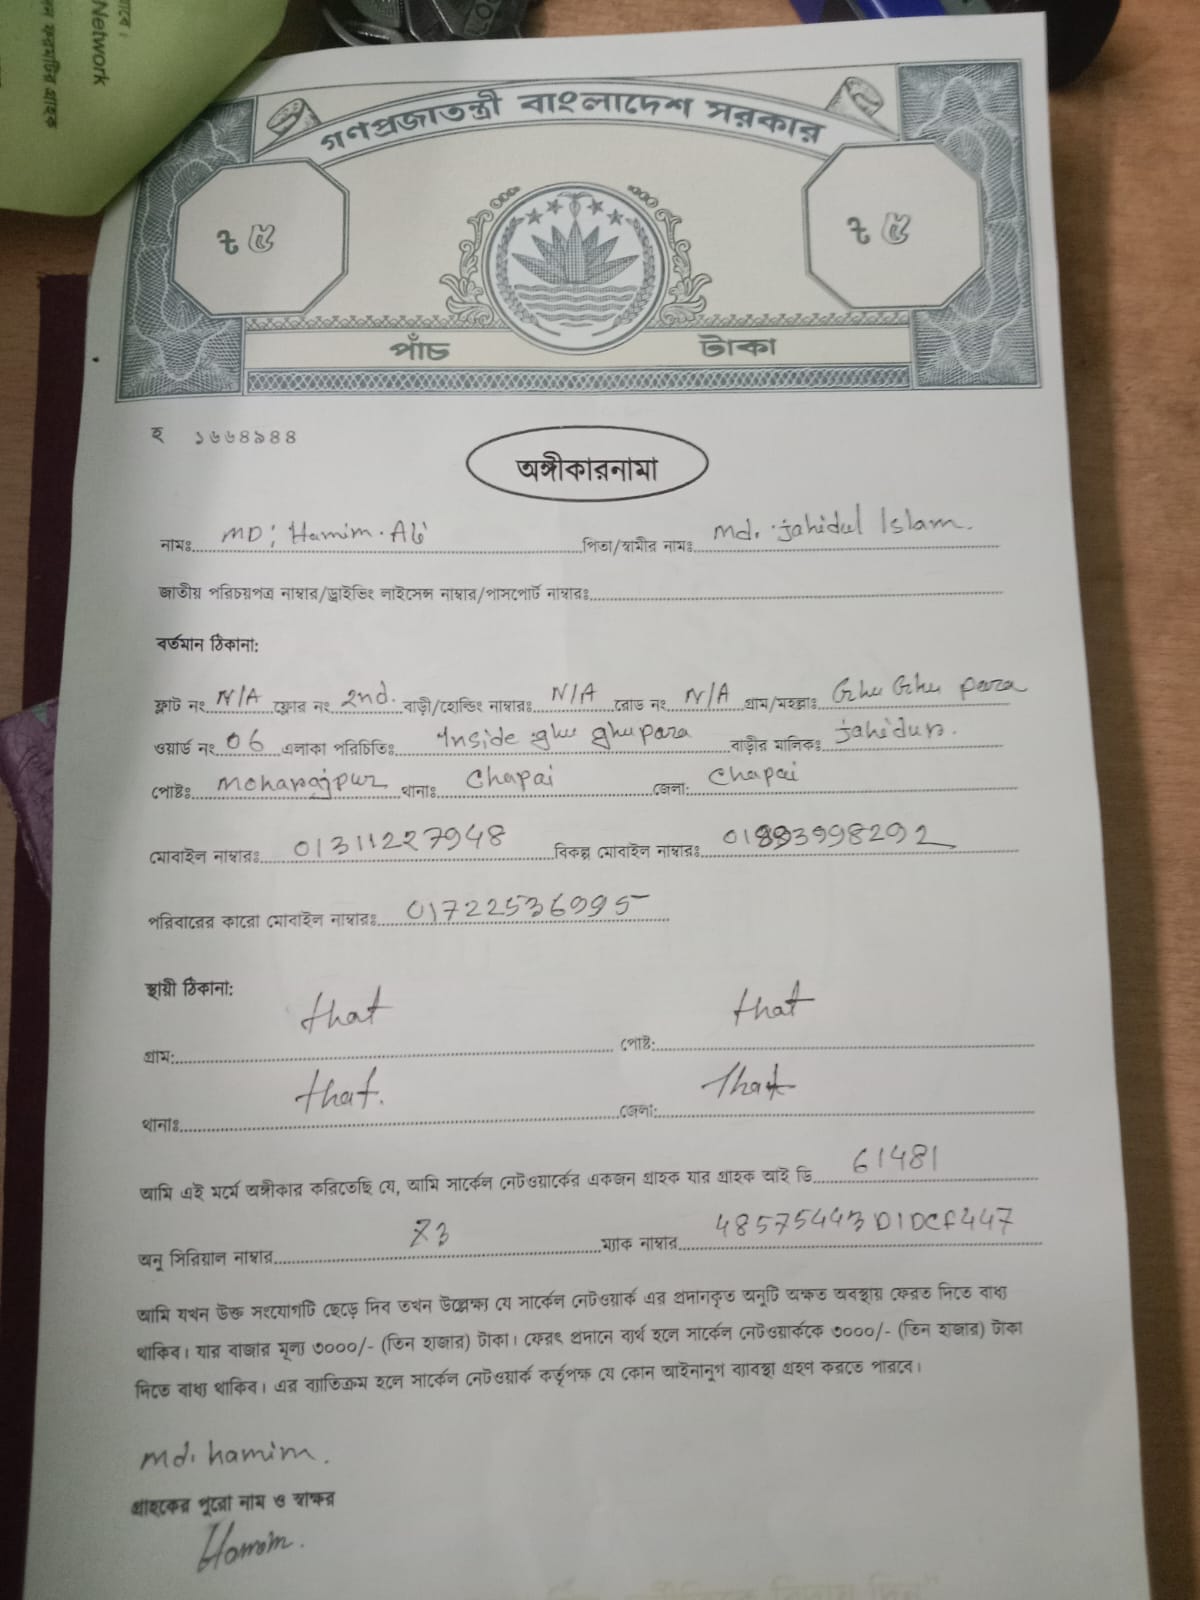 Network
গণপ্রজাতন্ত্রী বাংলাদেশ সরকার
৳ ৫ ৳ ৫
পাঁচ টাকা
হ ১৬৬৪৯৪৪
অঙ্গীকারনামা
নামঃ MD: Hamim. Ali পিতা/স্বামীর নামঃ Md. Jahidul Islam.
জাতীয় পরিচয়পত্র নাম্বার/ড্রাইভিং লাইসেন্স নাম্বার/পাসপোর্ট নাম্বারঃ
বর্তমান ঠিকানা:
ফ্লাট নং N/A ফ্লোর নং 2nd. বাড়ী/হোল্ডিং নাম্বারঃ N/A রোড নং N/A গ্রাম/মহল্লাঃ Ghu Ghu para
ওয়ার্ড নং 06 এলাকা পরিচিতিঃ Inside ghu ghu para বাড়ীর মালিকঃ jahidur.
পোষ্টঃ moharajpur থানাঃ Chapai জেলা: Chapai
মোবাইল নাম্বারঃ 01311227948 বিকল্প মোবাইল নাম্বারঃ
পরিবারের কারো মোবাইল নাম্বারঃ 01722536995
স্থায়ী ঠিকানা:
গ্রাম: that পোষ্ট: that
থানাঃ that. জেলা: That
আমি এই মর্মে অঙ্গীকার করিতেছি যে, আমি সার্কেল নেটওয়ার্কের একজন গ্রাহক যার গ্রাহক আই ডি 61481
অনু সিরিয়াল নাম্বার ম্যাক নাম্বার 48575443D1DCF447
আমি যখন উক্ত সংযোগটি ছেড়ে দিব তখন উল্লেক্ষ্য যে সার্কেল নেটওয়ার্ক এর প্রদানকৃত অনুটি অক্ষত অবস্থায় ফেরত দিতে বাধ্য
থাকিব। যার বাজার মূল্য ৩০০০/- (তিন হাজার) টাকা। ফেরৎ প্রদানে ব্যর্থ হলে সার্কেল নেটওয়ার্ককে ৩০০০/- (তিন হাজার) টাকা
দিতে বাধ্য থাকিব। এর ব্যাতিক্রম হলে সার্কেল নেটওয়ার্ক কর্তৃপক্ষ যে কোন আইনানুগ ব্যাবস্থা গ্রহণ করতে পারবে।
md. hamim.
গ্রাহকের পুরো নাম ও স্বাক্ষর
Hamim.